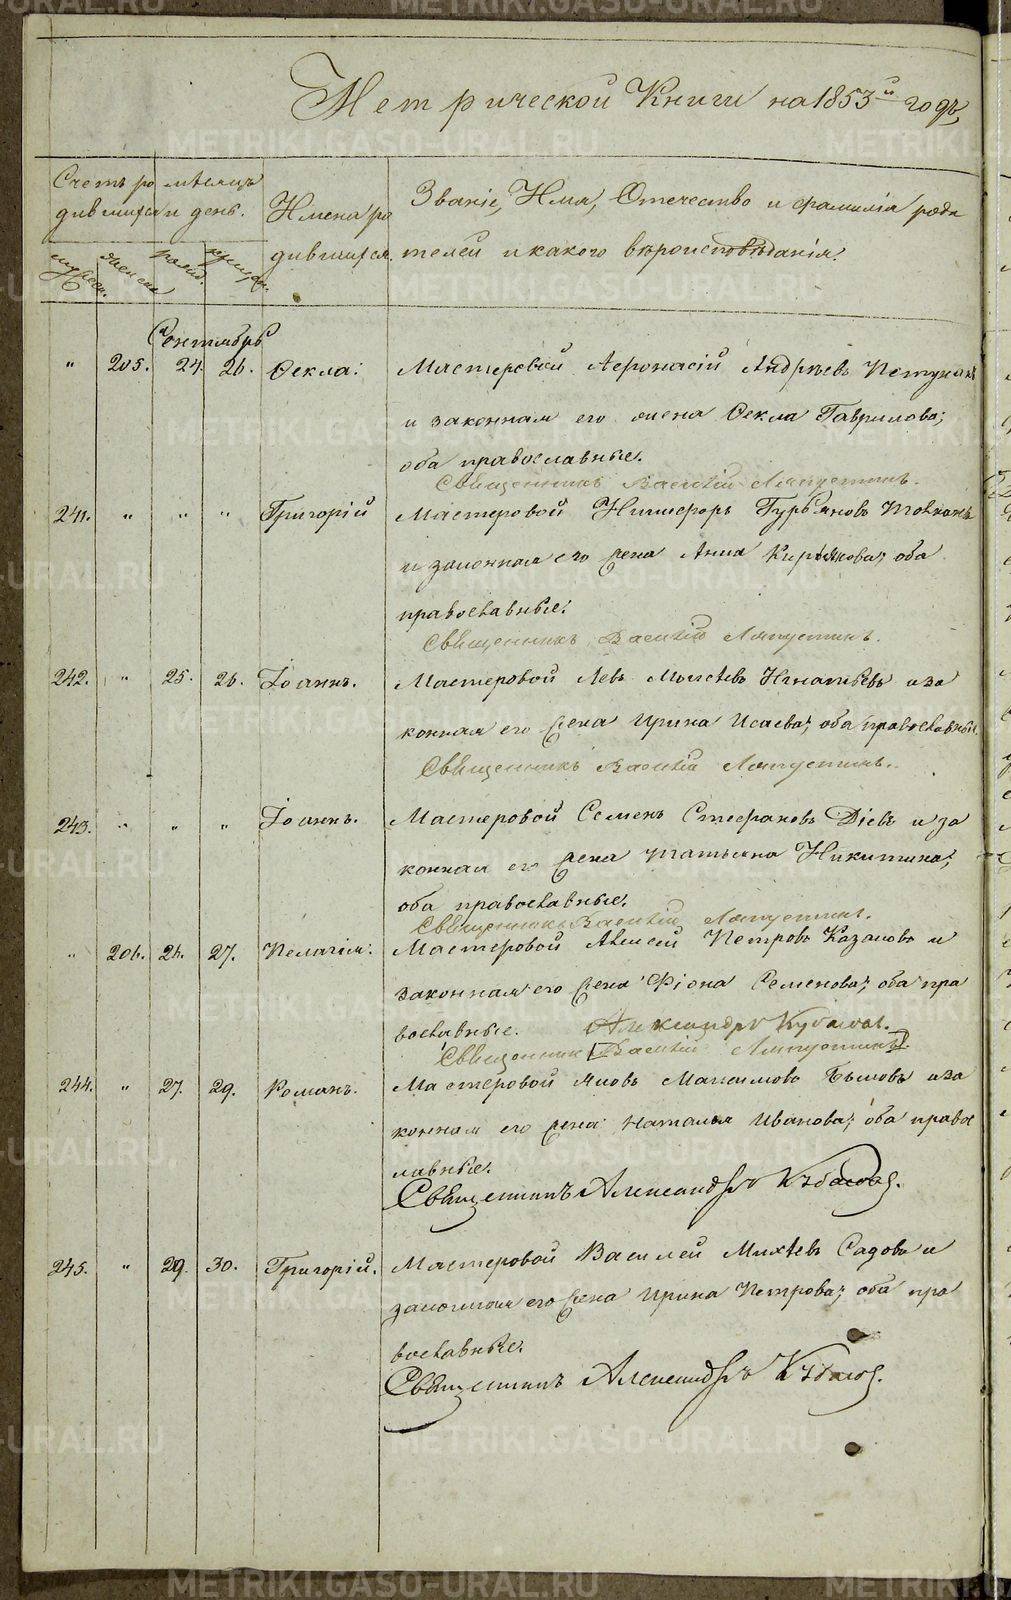 Метрической Книги на 1853й годъ,
Счетъ ро дившихся
месяцъ и день.
Имена ро дившихся.
Званіе, Имя, Отчество и фамилія роди
телей и какого вѣроисповѣданія.
мужеск. женска рожд. крещен.
Сентябрь
" 205. 24. 26. Ѳекла: Мастеровой Аѳонасій Андрѣевъ
и законная его жена Ѳекла Гаврилова;
оба православные.
Священникъ Василій Ляпустинъ.
241. " " " Григорій Мастеровой Никифоръ Гурьяновъ
и законная его жена Анна Кирьякова; оба
православные:
Священникъ Василій Ляпустинъ.
242. " 25. 26. Іоаннъ. Мастеровой Левъ Моисѣевъ Игнатьевъ и за
конная его жена Ирина Исаева; оба православные
Священникъ Василій Ляпустинъ.
243. " " " Іоаннъ. Мастеровой Семенъ Стефановъ Діевъ и за
конная его жена Татьяна Никитина;
оба православные.
Священникъ Василій Ляпустинъ.
" 206. 26. 27. Пелагія: Мастеровой Алексей Петровъ Казаковъ и
законная его жена Фіона Семенова; оба пра
вославные. Александръ Кубасов.
Священник Василій Ляпустинъ.
244. " 27. 29. Романъ. Мастеровой Яковъ Максимовъ Быковъ и за
конная его жена Наталья Иванова; оба правос
лавные.
Священникъ Александръ Кубасов.
245. " 29. 30. Григорій. Мастеровой Василей Михѣевъ Садовъ и
законная его жена Ирина Петрова; оба пра
вославные.
Священникъ Александръ Кубасов.
METRIKI.GASO-URAL.RU